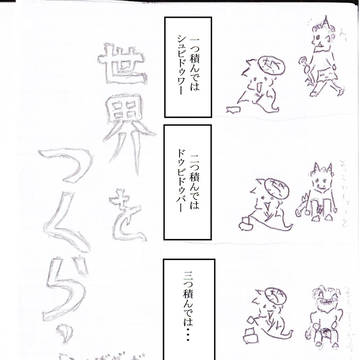 一つ積んでは
シュビドゥワー
二つ積んでは
ドゥビドゥバー
三つ積んでは・・・
世界を
つくら、